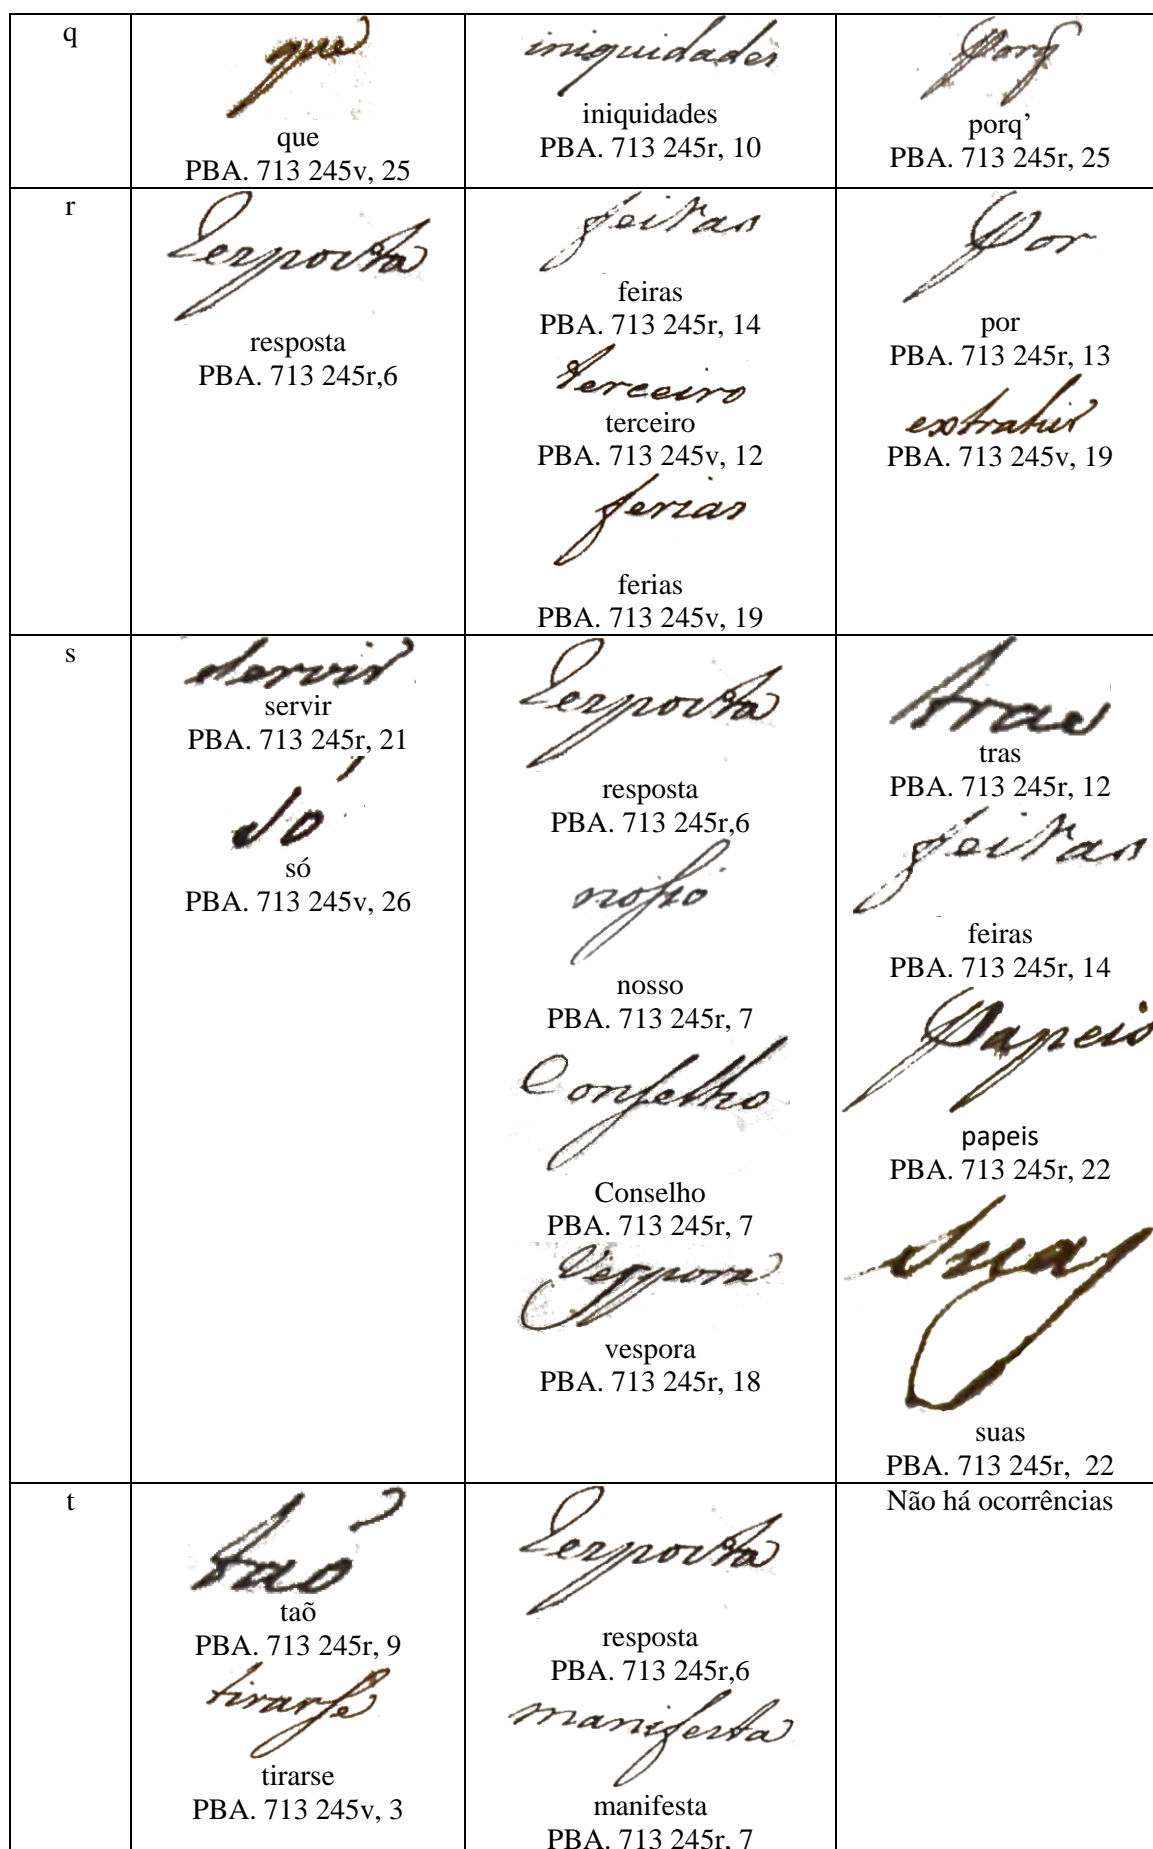 q
que
que
PBA. 713 245v, 25
iniquidades
iniquidades
PBA. 713 245r, 10
porq
porq’
PBA. 713 245r, 25
r
resposta
resposta
PBA. 713 245r,6
feiras
feiras
PBA. 713 245r, 14
terceiro
terceiro
PBA. 713 245v, 12
ferias
ferias
PBA. 713 245v, 19
por
por
PBA. 713 245r, 13
extrahir
PBA. 713 245v, 19
s
servir
servir
PBA. 713 245r, 21
só
só
PBA. 713 245v, 26
resposta
resposta
PBA. 713 245r,6
nosso
nosso
PBA. 713 245r, 7
Conselho
Conselho
PBA. 713 245r, 7
vespora
vespora
PBA. 713 245r, 18
tras
tras
PBA. 713 245r, 12
feiras
feiras
PBA. 713 245r, 14
papeis
papeis
PBA. 713 245r, 22
suas
suas
PBA. 713 245r, 22
t
taõ
taõ
PBA. 713 245r, 9
tirarse
tirarse
PBA. 713 245v, 3
resposta
resposta
PBA. 713 245r,6
manifesta
manifesta
PBA. 713 245r, 7
Não há ocorrências